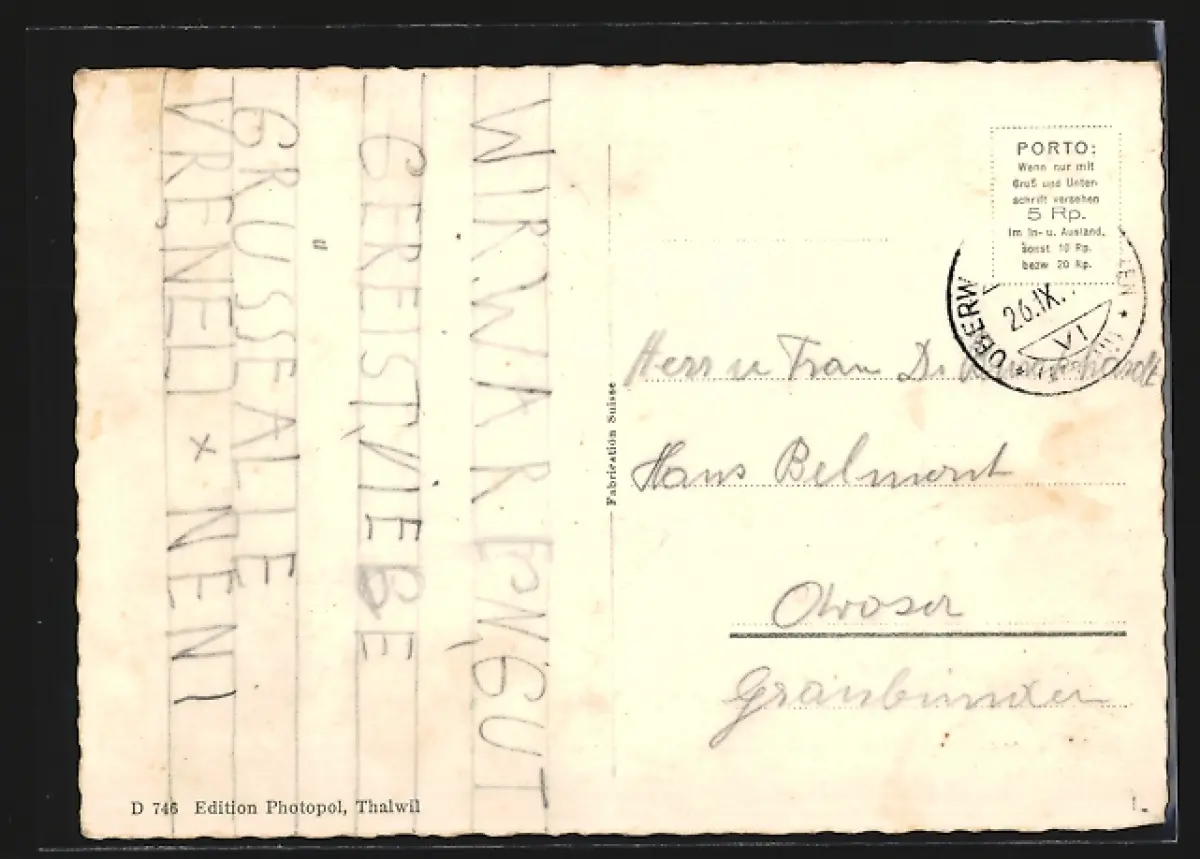 WIR WAREN GUT
GEREIST, LIEBE
GRÜSSE ALLE
VRENELI × NENI
PORTO:
Wenn nur mit
Gruß und Unter-
schrift versehen
5 Rp.
im In- u. Ausland,
sonst 10 Rp.
bezw 20 Rp.
OBERW
26.IX.
VI
Herr u Frau Dr
Haus Belmont
Arosa
Graubünden
Fabrication Suisse
D 746 Edition Photopol, Thalwil